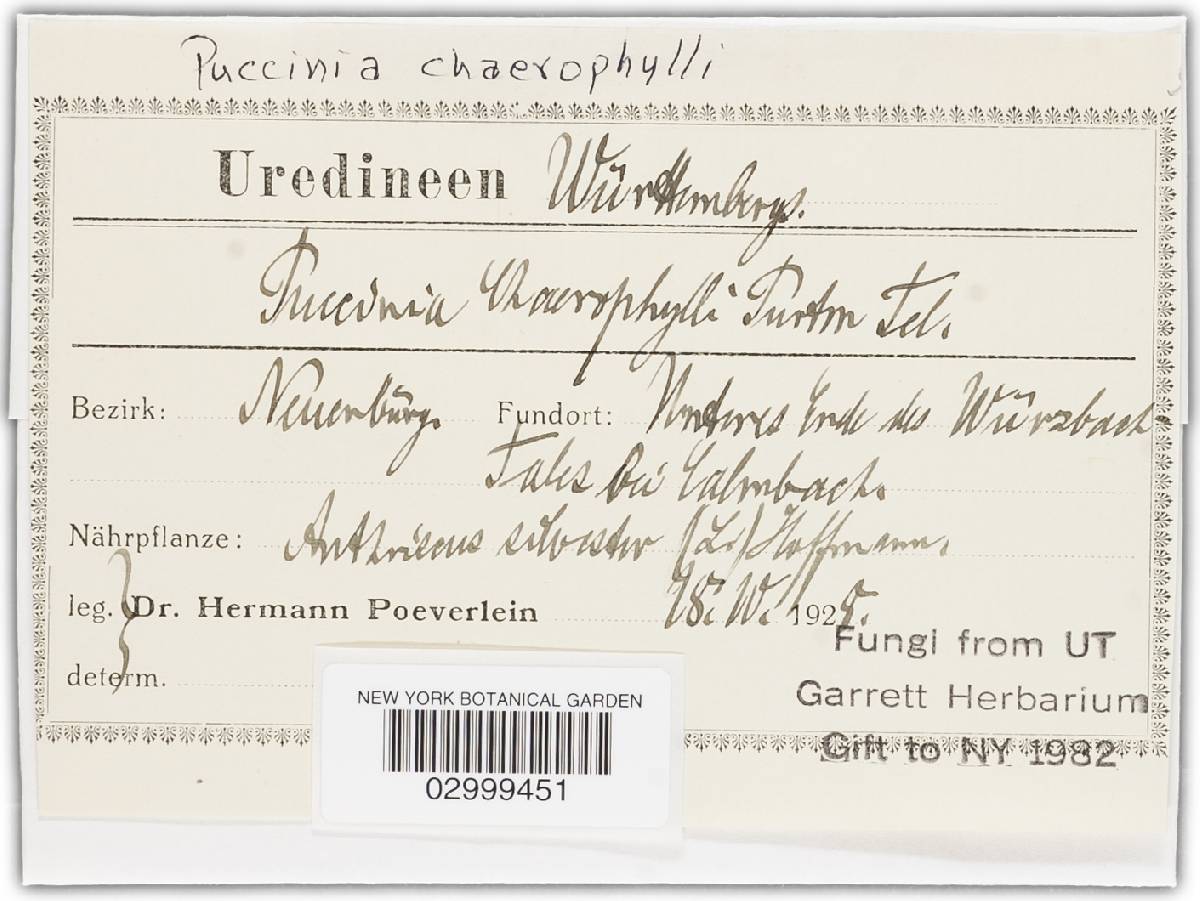 Puccinia chaerophylli
Uredineen Württembergs.
Puccinia Chaerophylli Purton Tel.
Bezirk: Neuenbürg. Fundort: Unteres Ende des Würzbach
Tales bei Calmbach.
Nährpflanze: Anthriscus silvester (L.) Hoffmann.
leg. Dr. Hermann Poeverlein 192
determ.
Fungi from UT
Garrett Herbarium
Gift to NY 1982
NEW YORK BOTANICAL GARDEN
02999451